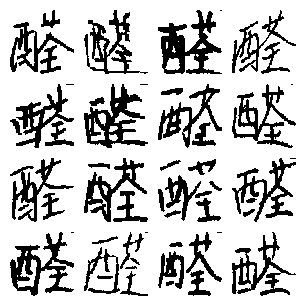 醛醛醛醛
醛醛醛醛
醛醛醛醛
醛醛醛醛